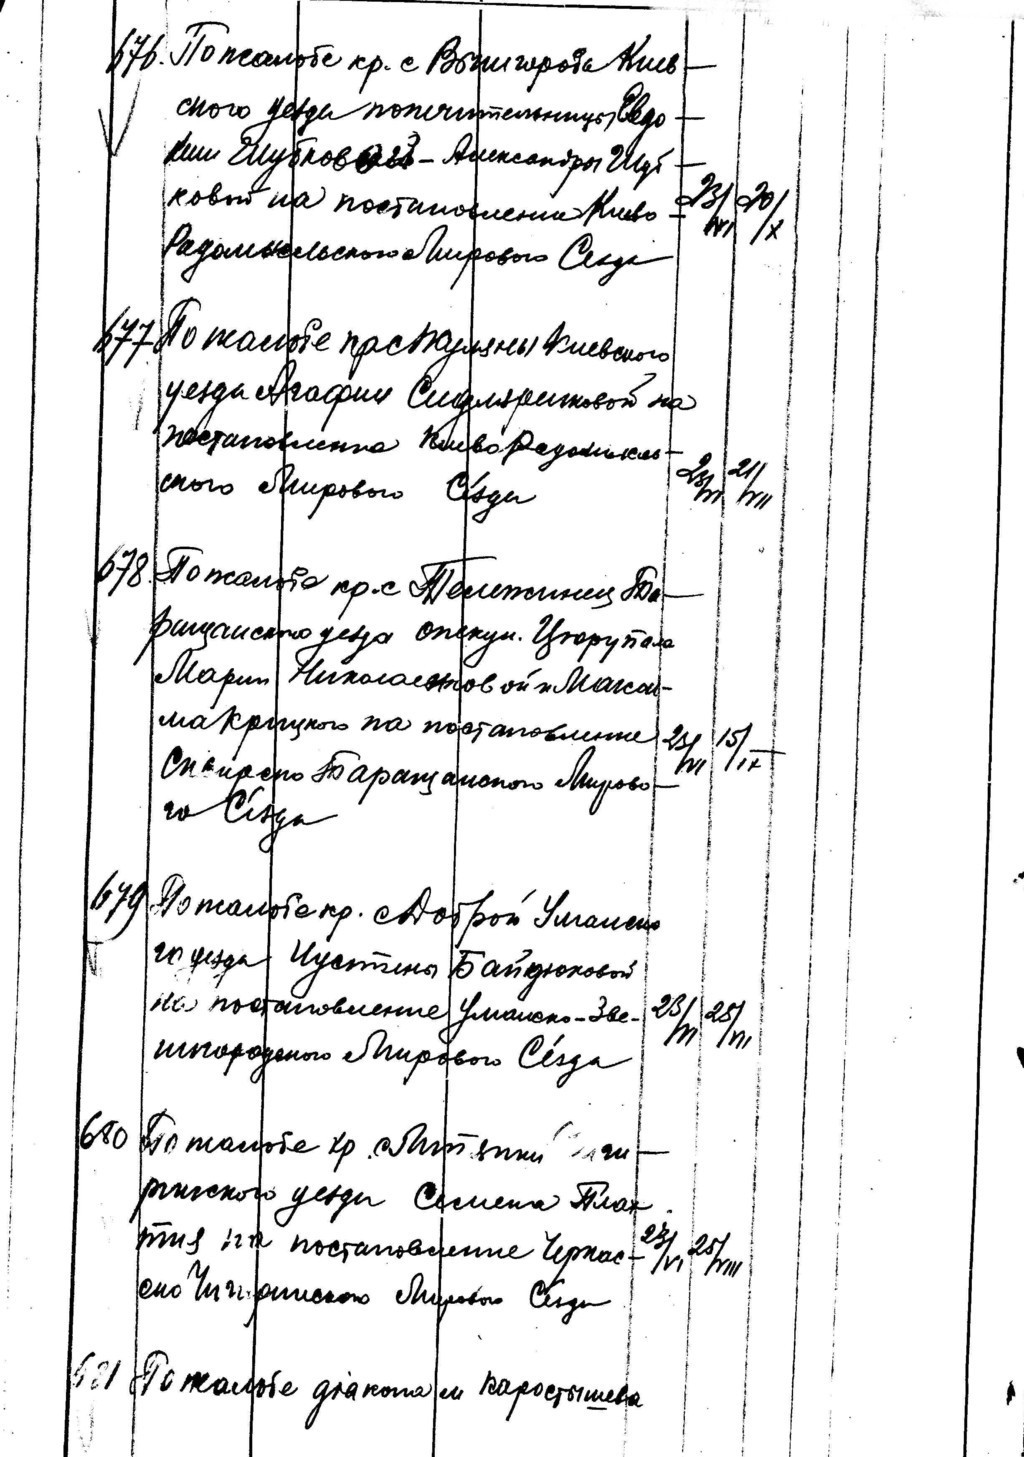 676. По жалобе кр. с Вышгорода Киев–
ского уезда попечительницы Евдо–
кии Шубковой – Александры Шуб–
ковой на постановление Киево– 23/VI 20/X
Радомысльского Мирового Сезда
677 По жалобе кр с Казляны Киевского
уезда Агафии на
постановление Киево Радомысль–
ского Мирового Сезда 23/VI 21/VII
678. По жалобе кр. с Тележинец Та–
ращанского уезда опекун. Цюрупала
Марии Николаенковой и Макси–
ма Крицкого на постановление 23/VI 15/IX
Сквирско Таращанского Мирово–
го Сезда
679 По жалобе кр. с Доброй Уманско
го уезда Иустины Байдюковой
на постановление Уманско–Зве– 23/VI 25/VII
нигородского Мирового Сезда
680 По жалобе кр. с Мотзпки Чиги–
ринского уезда Семена Плах
тия на постановление Черкас– 23/VI 25/VIII
ско Чигиринского Мирового Сезда
681 По жалобе діакона м Каростышева